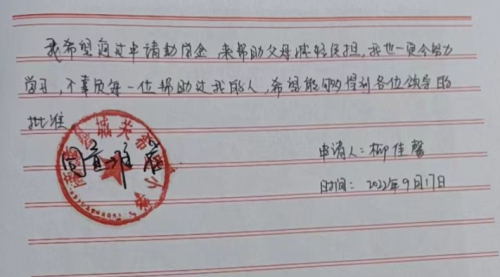 我希望通过申请助学金 来帮助父母减轻负担，我也一定会努力
学习，不辜负每一位帮助过我的人，希望能够得到各位领导的
批准
同意 推荐
申请人：柳佳馨
时间：2022年9月17日